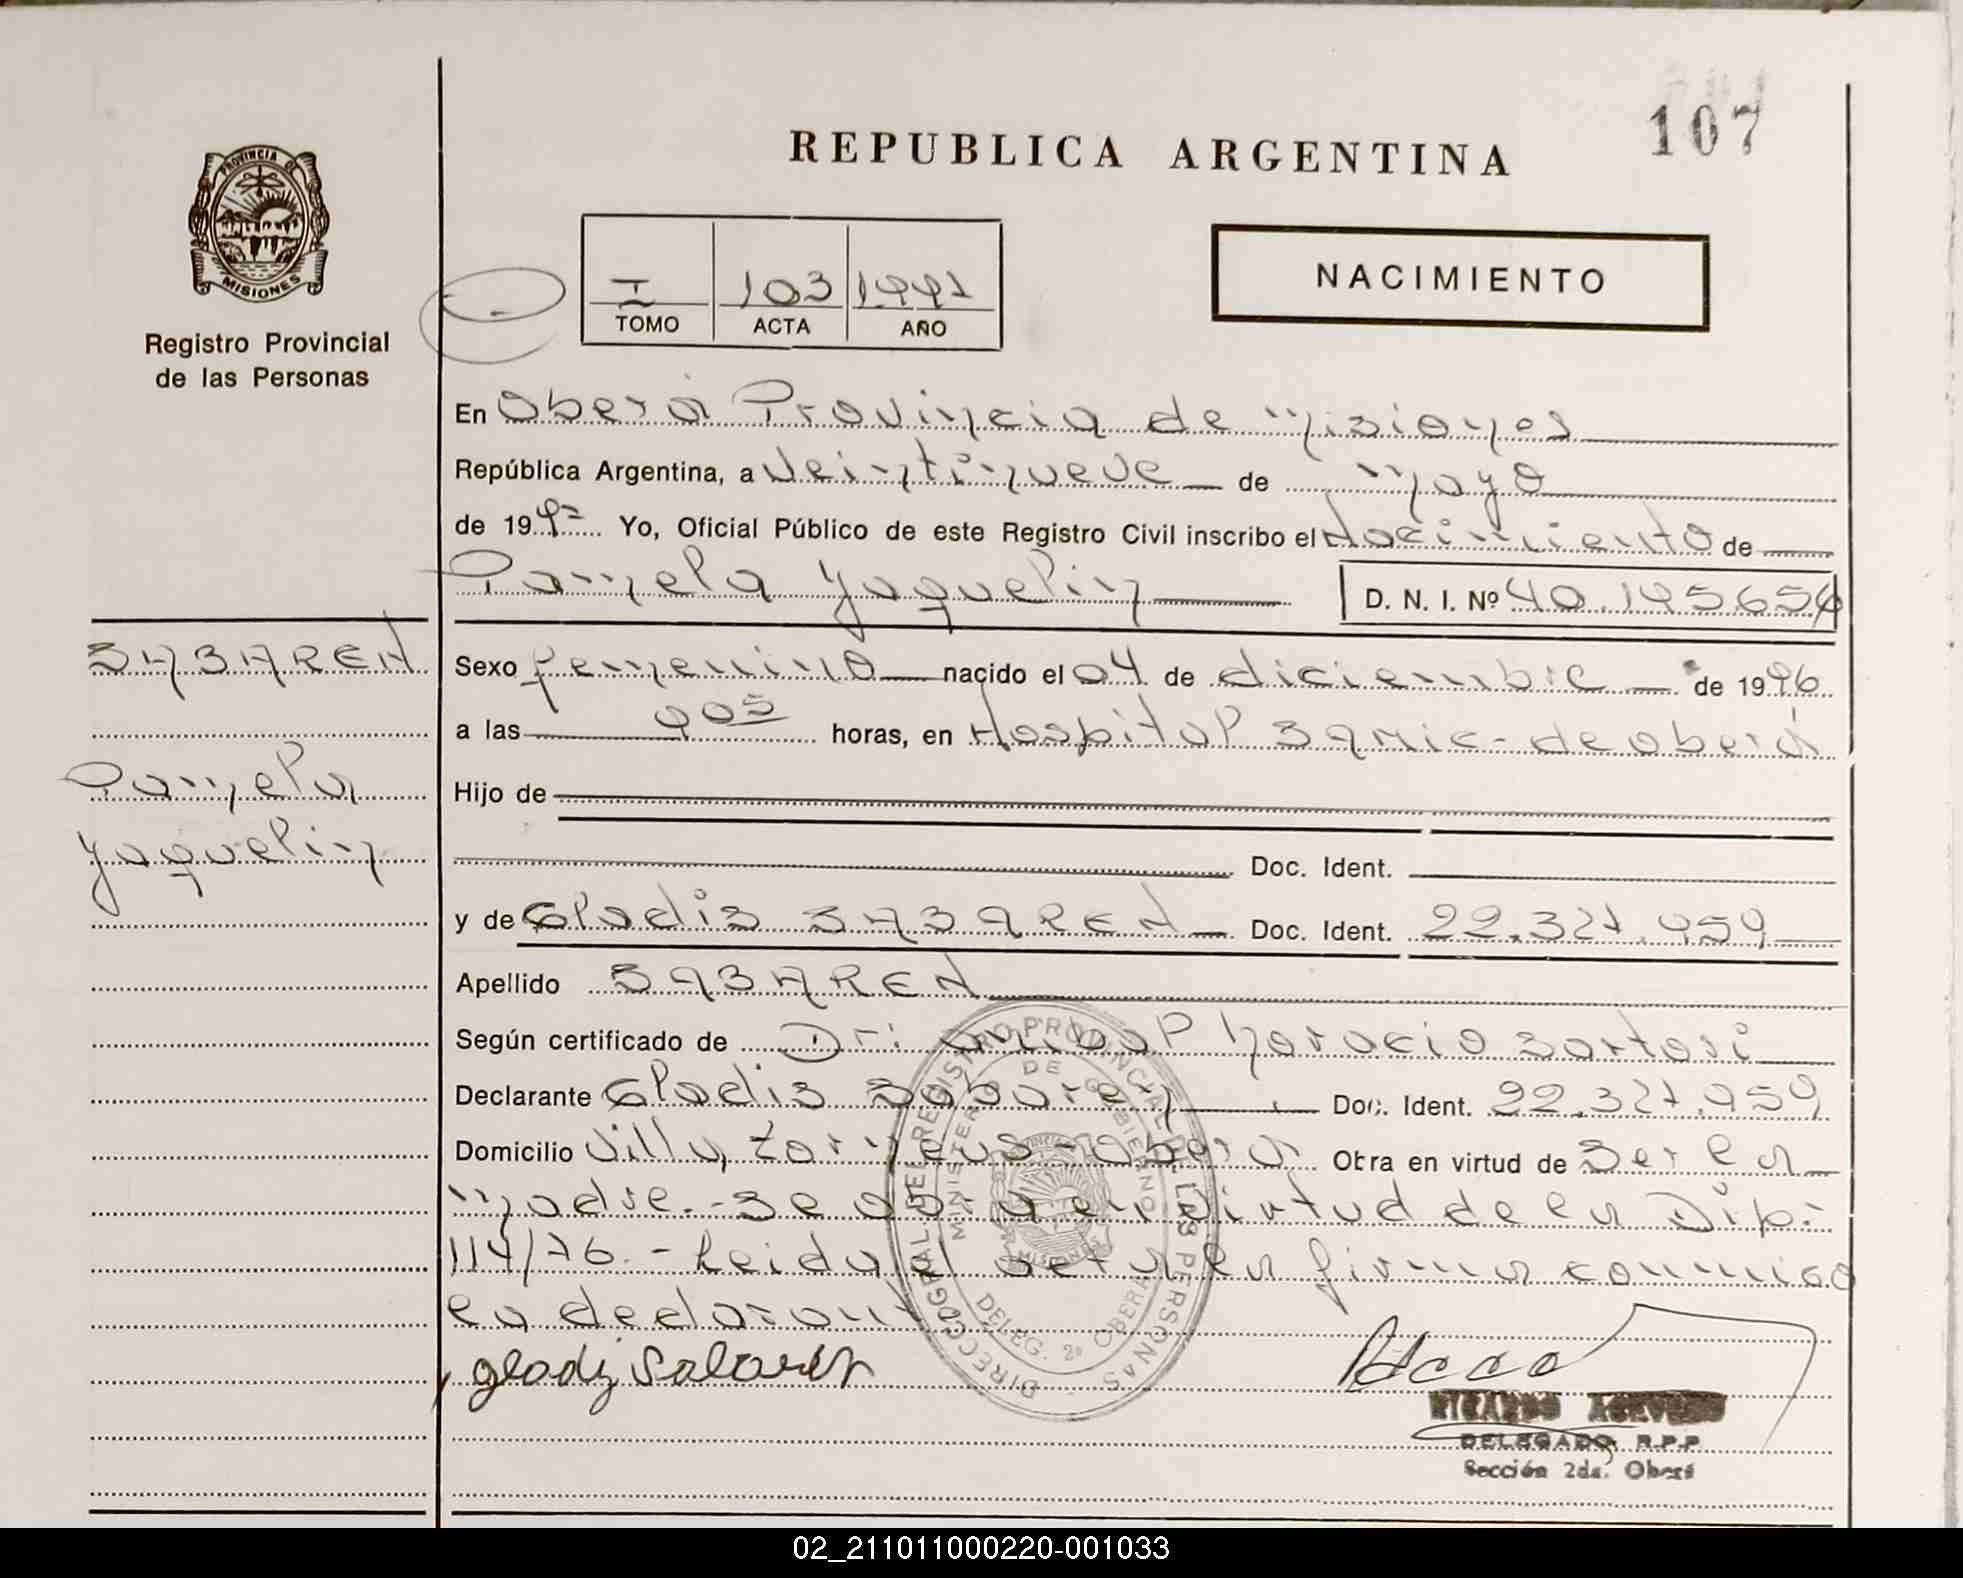 107
REPUBLICA ARGENTINA
PROVINCIA DE
MISIONES
Registro Provincial
de las Personas
I 103 1997
TOMO ACTA AÑO
NACIMIENTO
En Oberá Provincia de Misiones
República Argentina, a veintinueve de Mayo
de 1997 Yo, Oficial Público de este Registro Civil inscribo el Nacimiento de
Pamela Yaquelin D. N. I. Nº 40.195.654
SABAREN
Pamela
Yaquelin
Sexo femenino nacido el 04 de diciembre de 1996
a las 905 horas, en Hospital SAMIC - de Oberá
Hijo de
Doc. Ident.
y de Gladis SABAREN Doc. Ident. 22.327.959
Apellido SABAREN
Según certificado de Dr: Anibal Horacio Sartori
Declarante Gladis Sabaren Doc. Ident. 22.327.959
Domicilio Villa Torneus - Oberá Obra en virtud de Ser la
Madre.- Se abre en virtud de la Disp.
114/76.- Leida el acta la firma conmigo
la declarant
gladis Sabaren
DIRECC. GRAL. DEL REGISTRO PROVINCIAL DE LAS PERSONAS
MINISTERIO DE GOBIERNO
MISIONES
DELEG. 2ª OBERA
RICARDO ACEVEDO
DELEGADO R.P.P
Sección 2da. Oberá
02_211011000220-001033